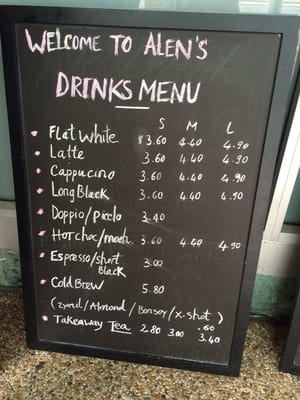 WELCOME TO ALEN'S
DRINKS MENU
S M L
Flat White $3.60 4.40 4.90
Latte 3.60 4.40 4.90
Cappucino 3.60 4.40 4.90
Long Black 3.60 4.40 4.90
Doppio/Picclo 3.40
Hot choc/moch. 3.60 4.40 4.90
Espresso/short 3.00
Black
Cold Brew 5.80
(Zymil/Almond/Bonsoy/x-shot)
.60
Takeaway Tea 2.80 3.00 3.40